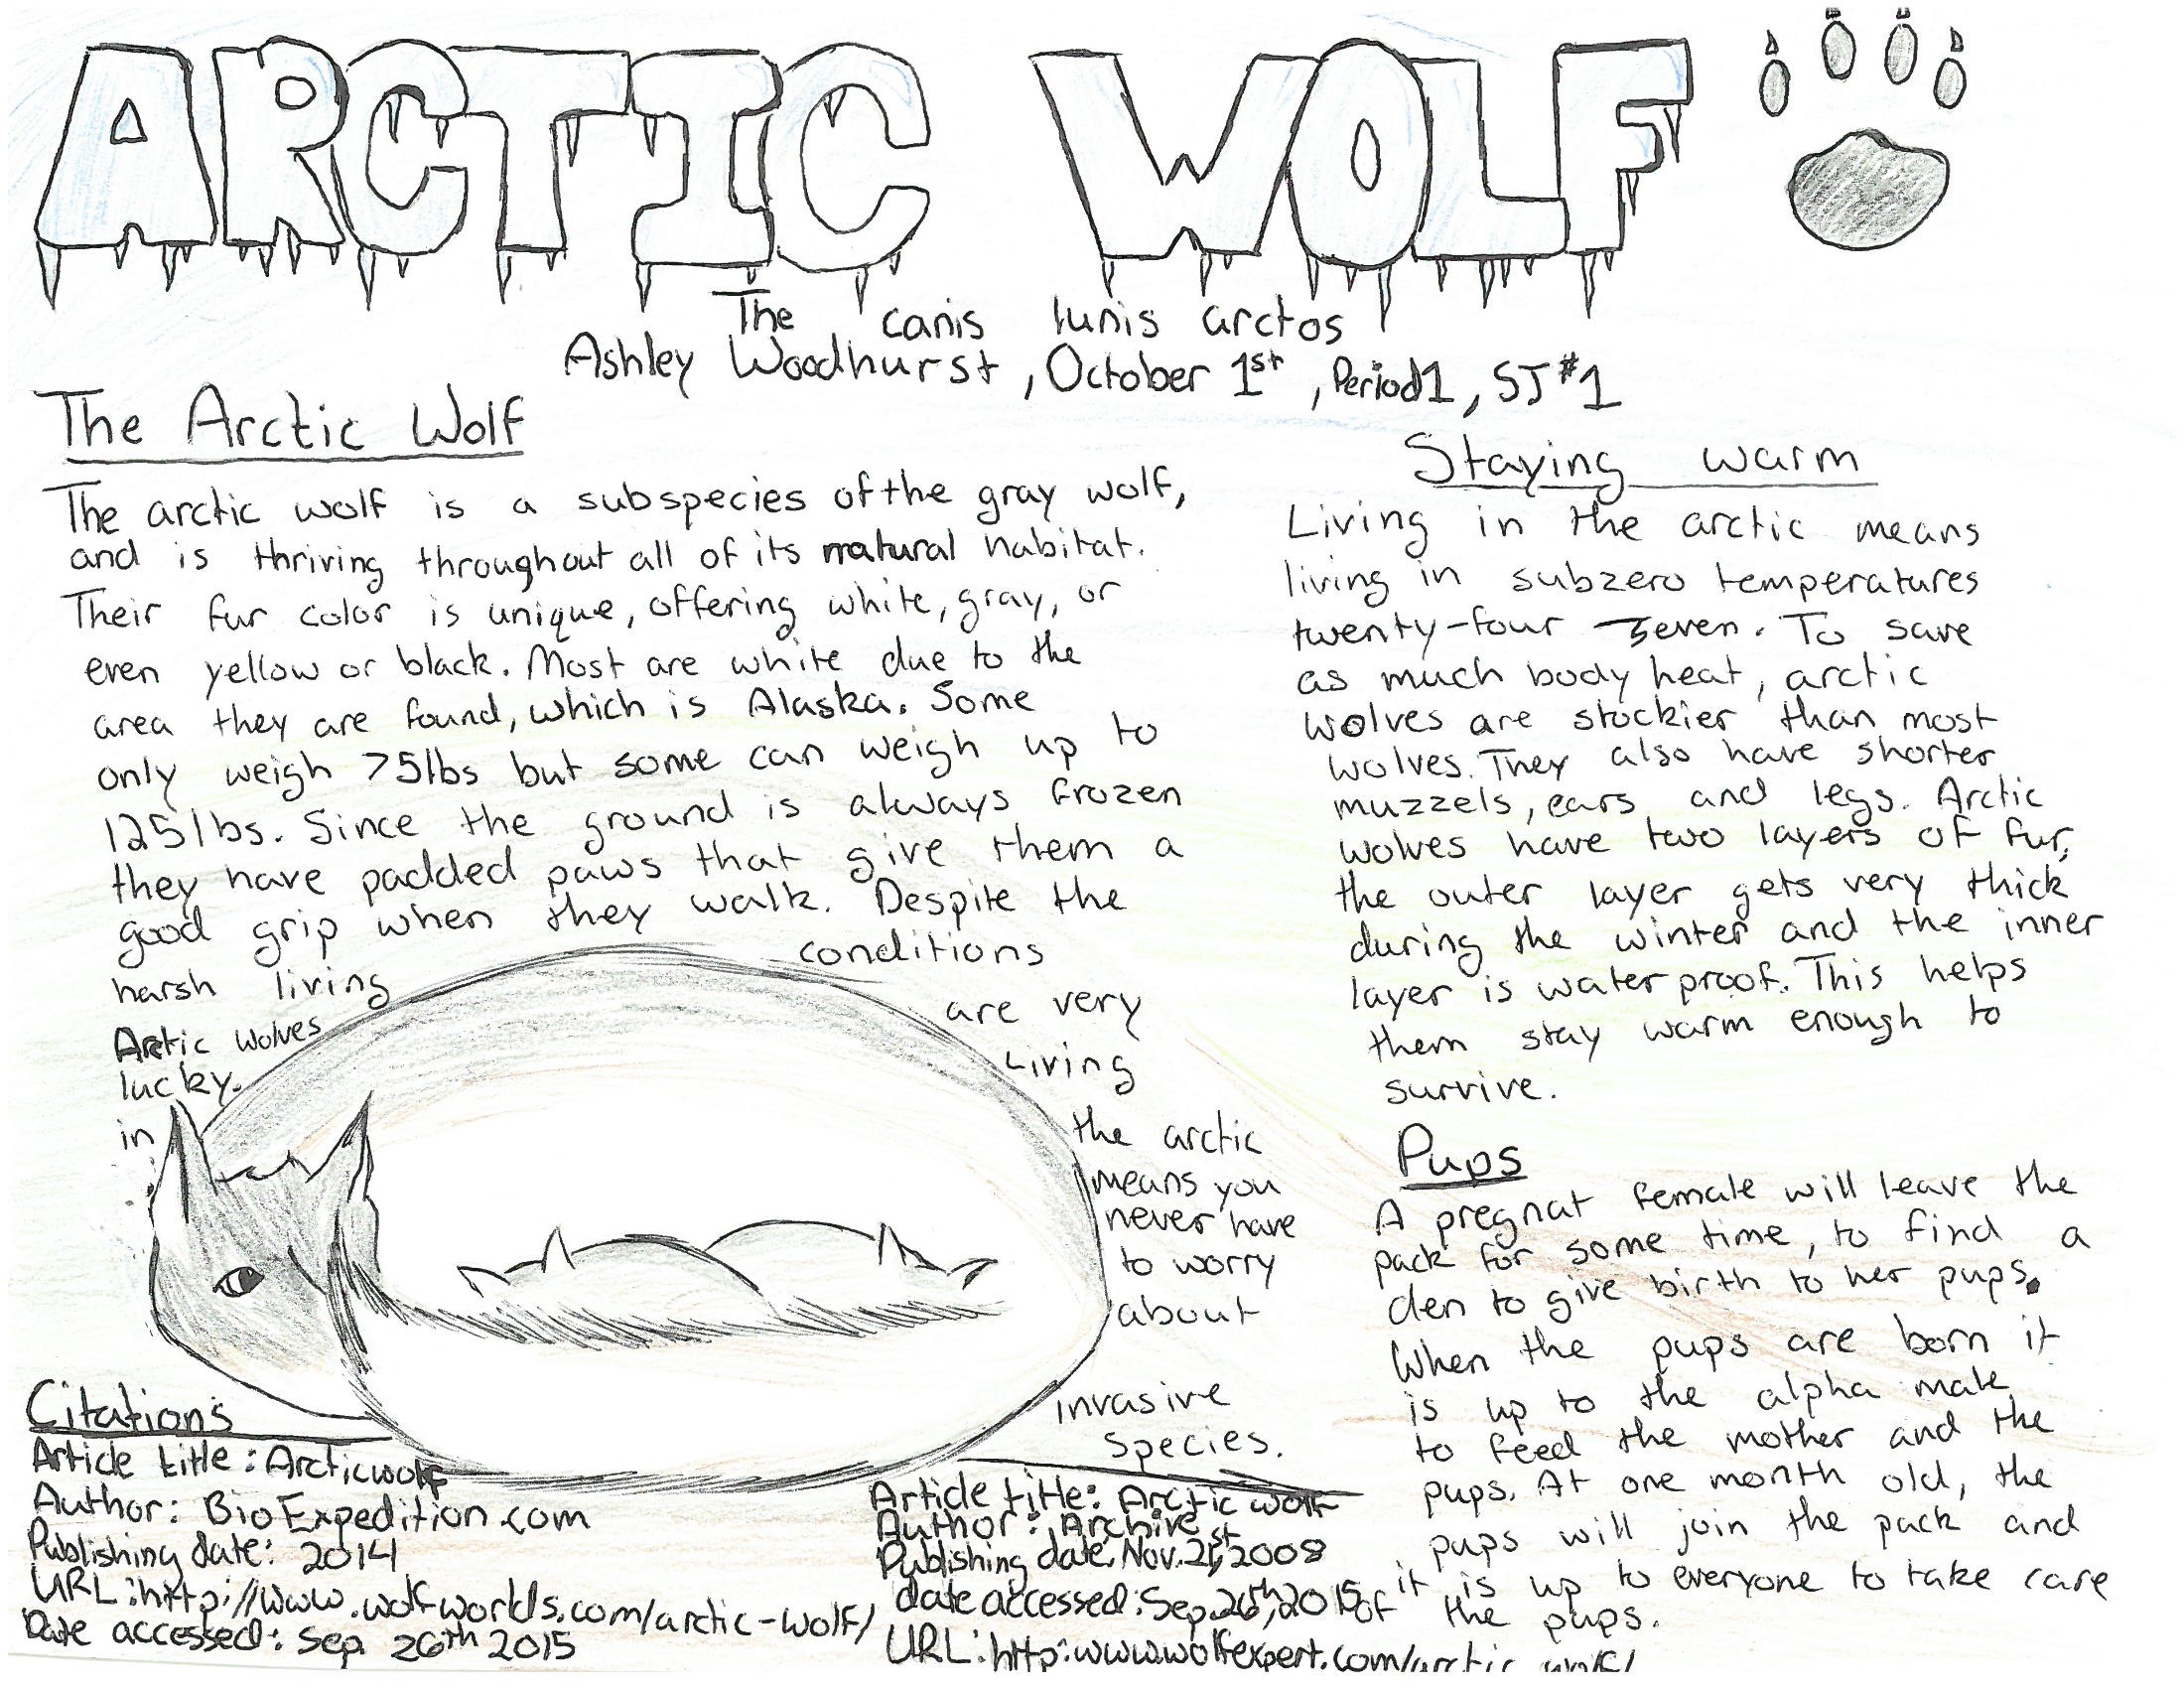 ARCTIC WOLF
The canis lunis arctos
Ashley Woodhurst, October 1st, Period 1, SJ #1
The Arctic Wolf
The arctic wolf is a subspecies of the gray wolf,
and is thriving throughout all of its natural habitat.
Their fur color is unique, offering white, gray, or
even yellow or black. Most are white due to the
area they are found, which is Alaska. Some
only weigh 75lbs but some can weigh up to
125lbs. Since the ground is always frozen
they have padded paws that give them a
good grip when they walk. Despite the
harsh living conditions
Arctic wolves are very
lucky. Living
in the arctic
means you
never have
to worry
about
invasive
species.
Staying warm
Living in the arctic means
living in subzero temperatures
twenty-four seven. To save
as much body heat, arctic
wolves are stockier than most
wolves. They also have shorter
muzzels, ears and legs. Arctic
wolves have two layers of fur,
the outer layer gets very thick
during the winter and the inner
layer is water proof. This helps
them stay warm enough to
survive.
Pups
A pregnat female will leave the
pack for some time, to find a
den to give birth to her pups.
When the pups are born it
is up to the alpha male
to feed the mother and the
pups. At one month old, the
pups will join the pack and
it is up to everyone to take care
of the pups.
Citations
Article title: Arctic wolf
Author: BioExpedition.com
Publishing date: 2014
URL: http://www.wolfworlds.com/arctic-wolf/
Date accessed: Sep. 26th 2015
Article title: Arctic wolf
Author: Archive
Publishing date: Nov. 21st, 2008
date accessed: Sep. 26th, 2015
URL: http:www.wolfexpert.com/arctic wolf/